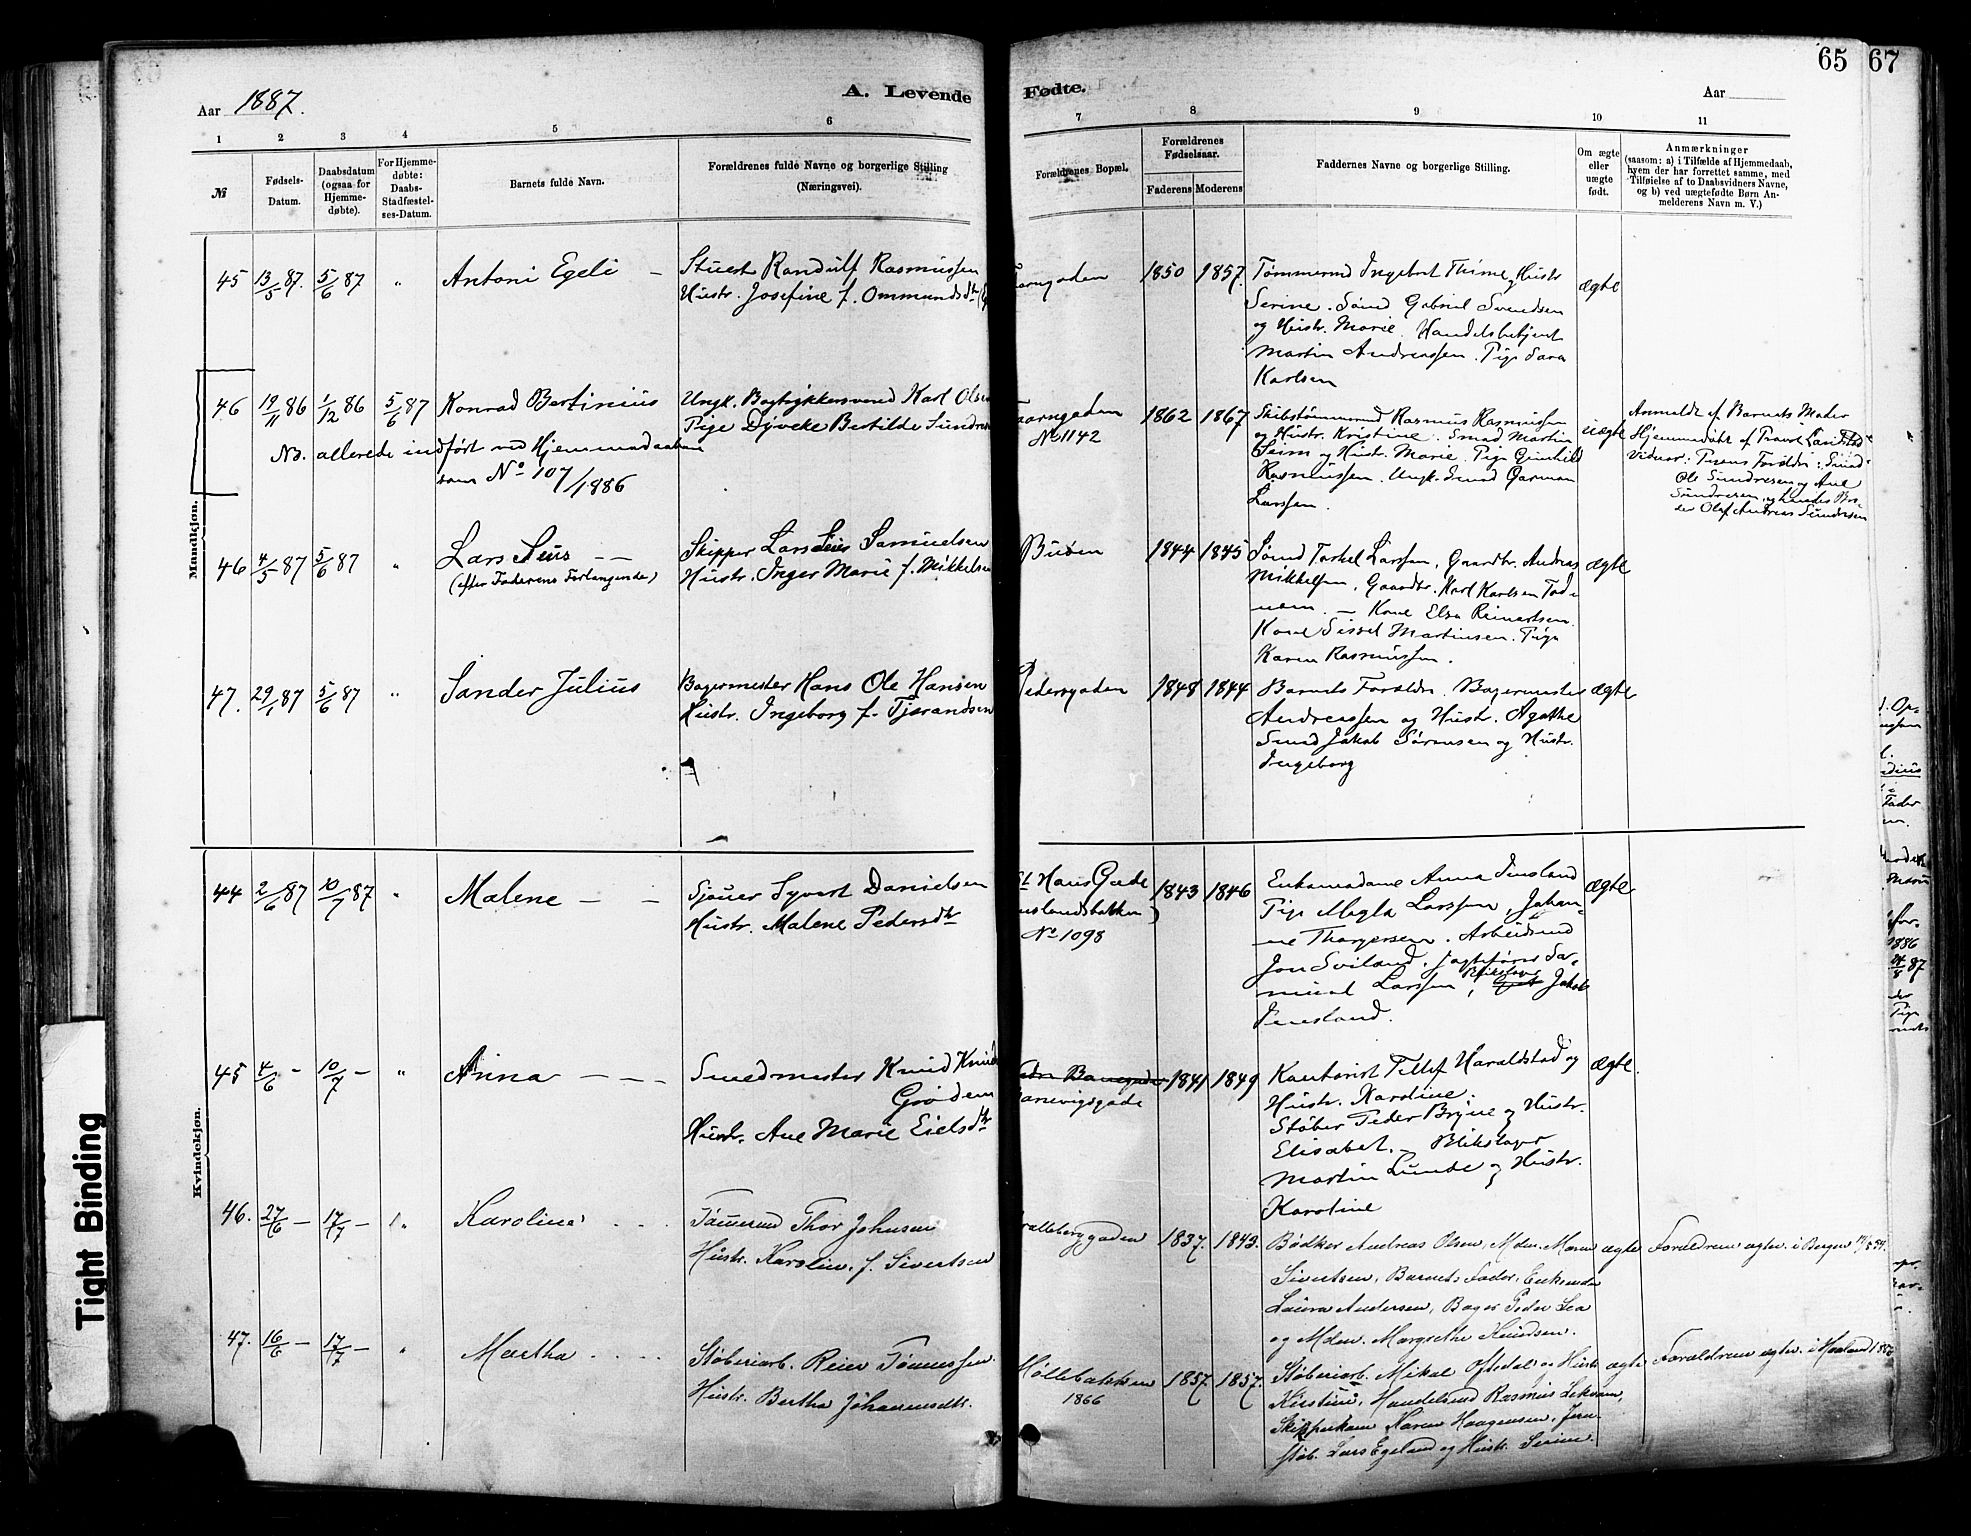 65
67
Aar 1887.
A. Levende
Fødte.
Aar
1 2 3 4 5 6 7 8 9 10 11
№
Fødsels-
Datum.
Daabsdatum
(ogsaa for
Hjemme-
døbte).
For Hjemme-
døbte:
Daabs-
Stadfæstel-
ses-Datum.
Barnets fulde Navn.
Forældrenes fulde Navne og borgerlige Stilling
(Næringsvei).
Forældrenes Bopæl.
Forældrenes
Fødselsaar.
Faderens
Moderens
Faddernes Navne og borgerlige Stilling.
Om ægte
eller
uægte
født.
Anmærkninger
(saasom: a) i Tilfælde af Hjemmedaab,
hvem der har forrettet samme, med
Tilføielse af to Daabsvidners Navne,
og b) ved uægtefødte Børn An-
melderens Navn m. V.)
Mandkjøn.
45 13/5 87. 5/6 87 " Antoni Egeli –
Stuert Randulf Rasmussen
Hustr. Josefine f. Ommundsdtr
1850 1857.
Tømmermd Ingebret Thime, Hustr
Serine. Smed Gabriel Svendsen
og Hustr. Marie. Handelsbetjent
Martin Andreassen. Pige Sara
Karlsen
ægte
46 19/11 86 1/12 86 5/6 87 Konrad Bertinius
Ungk. Bogtrykkersvend Karl Olsen
Pige Dyveke Bertilde Sundresen
Nb. allerede indført ved Hjemmedaaben
som No 107/1886
No 1142
1862 1867
Skibstømmermd Rasmus Rasmussen
og Hustr. Kristine. Smed Martin
Seim og Hustr. Marie. Pige Gunhild
Rasmussen. Ungk. Smed Garman
Larssen.
uægte
Anmeldt af Barnets Moder
Hjemmedøbt af
Vidner: Pigens Forældre: Smed
Ole Sundresen og Ane
Sundresen, og hendes Bro-
der Olaf Andreas Sundresen
46 4/5 87 5/6 87 " Lars Seus – –
(efter Faderens Forlangende)
Skipper Lars Seus Samuelsen
Hustr. Inger Marie f. Mikkelsen
Buøen
1844 1845
Smed Torkel Larssen, Gaardbr. Andreas
Mikkelsen, Gaardbr. Karl Karlsen Tod-
nem. – Kone Elsa Reinertsen.
Kone Sissel Martinsen. Pige
Karen Rasmussen.
ægte
47. 29/1 87 5/6 87 " Sander Julius
Bagermester Hans Ole Hansen
Hustr. Ingeborg f. Tjerandsen
Pedersgaden
1848 1844
Barnets Forældre. Bagermester
Andreassen og Hustr. Agathe
Smed Jakob Sørensen og Hustr.
Ingeborg
ægte
Kvindekjøn.
44 2/6 87 10/7 87 " Malene – –
Sjouer Syvert Danielsen
Hustr. Malene Pedersdtr
St Hans Gade
No 1098
1843 1846
Enkemadame Anna Tinsland
Pige Magla Larssen, Johan-
ne Thorgersen. Arbeidsmd
Jon Sviland. Jagtefører Sa-
muel Larssen, Blikslager Jakob
Tinsland.
ægte
45 4/6 – 10/7 – " Anna – – –
Smedmester Knud Knudsen
Grødem
Hustr. Ane Marie Eielsdtr
Banevigsgade
1841 1849
Kontorist Tellef Haraldstad og
Hustr. Karoline.
Støber Peder Bryne og Hustr.
Elisabet. – Blikslager
Martin Lunde og Hustr.
Karoline
ægte.
46. 27/6 – 17/7 – " Karoline
Tømermd Thor Johnsen
Hustr. Karoline f. Sivertsen
1837. 1843.
Bødker Andreas Olsen, Mdm. Maren
Sivertsen, Barnets Fader, Enkemdm
Laura Andersen, Bager Peder Lea
og Mdm. Margrethe Knudsen.
ægte
Forældrene ægtev. i Bergen
47. 16/6 – 17/7 – " Martha
Støberiarb. Reier Tønnessen
Hustr. Bertha Johannesdtr.
Møllebakken
1866
1857. 1857.
Støberiarb. Mikal Oftedal og Hustr
Kirstine, Handelsmd Rasmus
Skipperkone Karen Haagensen, Jern-
støb. Lars Egeland og Hustr. Serine.
ægte
Forældrene ægtev. i
Tight Binding